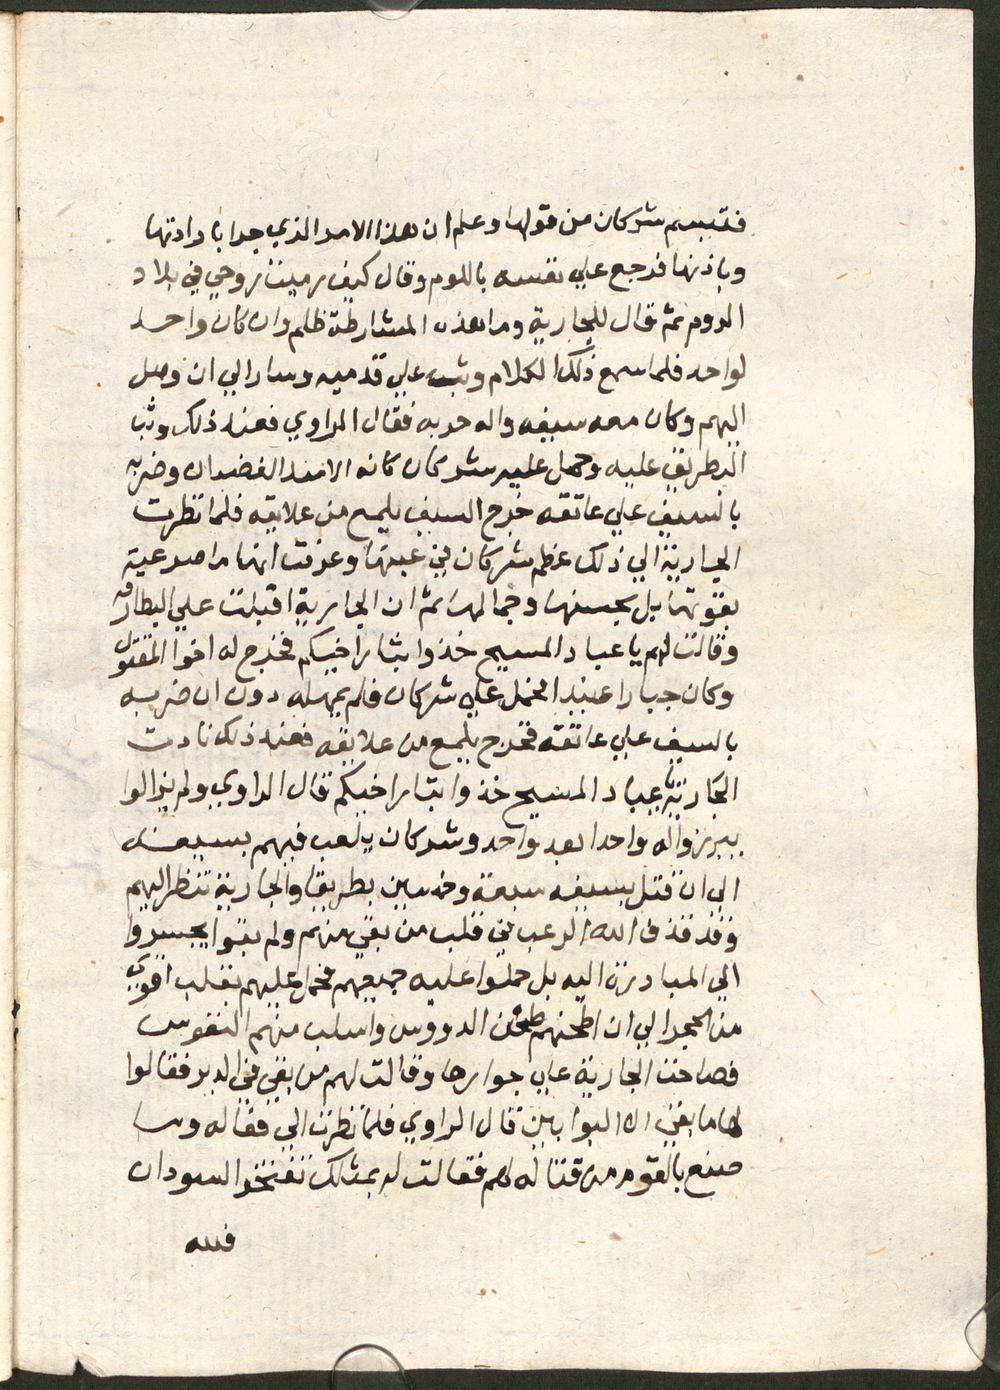 فتبسم شركان من قولها وعلم ان هذا الامر الذي جرا بارادتها
وباذنها فرجع علي نفسه باللوم وقال كيف رميت روحي في بلاد
الروم ثم قال للجارية وما هذه المشارطة ظلم وان كان واحد
لواحد فلما سمع ذلك الكلام وثب علي قدميه وسار الي ان وصل
اليهم وكان معه سيفه واله حربه فقال الراوي فعند ذلك وثب
البطريق عليه وحمل عليه شركان كانه الاسد الغضبان وضربه
بالسيف علي عاتقه خرج السيف يلمع من علايقه فلما نظرت
الجارية الي ذلك عظم شركان في عينها وعرفت انها ما صرعته
بقوتها بل بحسنها وجمالها ثم ان الجارية اقبلت علي البطارقه
وقالت لهم يا عباد المسيح خذوا بثار اخيكم فخرج له اخوا المقتول
وكان جبارا عنيدا فحمل علي شركان فلم يمهله دون ان ضربه
بالسيف علي عاتقه فخرج يلمع من علايقه فعند ذلك نادت
الجارية يا عباد المسيح خذوا بثار اخيكم قال الراوي ولم يزالوا
يبرزوا له واحدا بعد واحد وشركان يلعب فيهم بسيفه
الي ان قتل بسيفه سبعة وخمسين بطريقا والجارية تنظر اليهم
وقد قذف الله الرعب في قلب من بقي منهم ولم بقوا يجسروا
الي المبادرة اليه بل حملوا عليه جميعهم فحمل عليهم بقلب اقوي
من الحجر الي ان اطحنهم طحن الدروس واسلب منهم النفوس
فصاحت الجارية علي جوارها وقالت لهم من بقي في الدير فقالوا
لها ما بقي الا البوابين قال الراوي فلما نظرت الي فعاله وما
صنع بالقوم من قتاله لهم فقالت له بمثلك تفتخر السودان